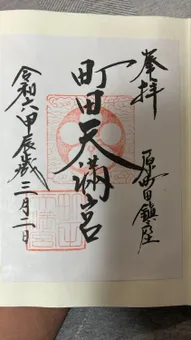 奉拝
原町田鎮座
町田天満宮
令和六甲辰歳三月二日